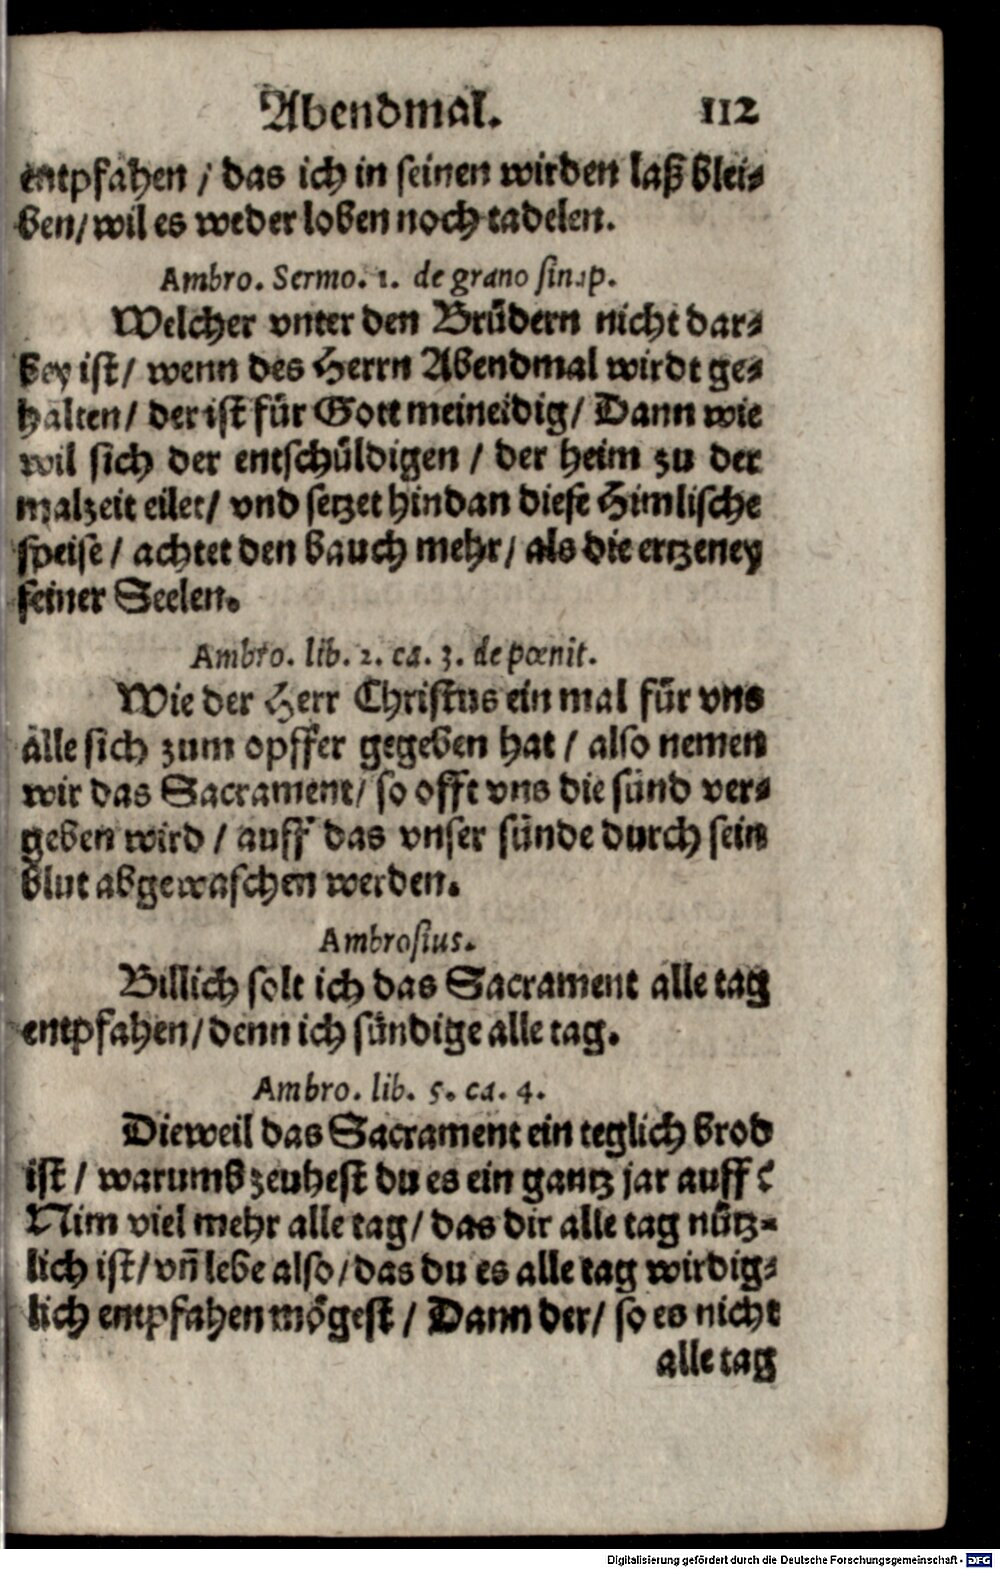 Abendmal. 112
entpfahen / das ich in seinen wirden laß blei-
ben / wil es weder loben noch tadelen.
Ambro. Sermo. 1. de grano sinap.
Welcher vnter den Brüdern nicht dar-
bey ist / wenn des Herrn Abendmal wirdt ge-
halten / der ist für Gott meineidig / Dann wie
wil sich der entschüldigen / der heim zu der
malzeit eilet / vnd setzet hindan diese Himlische
speise / achtet den bauch mehr / als die ertzeney
seiner Seelen.
Ambro. lib. 2. ca. 3. de pœnit.
Wie der Herr Christus ein mal für vns
alle sich zum opffer gegeben hat / also nemen
wir das Sacrament / so offt vns die sünd ver-
geben wird / auff das vnser sünde durch sein
blut abgewaschen werden.
Ambrosius.
Billich solt ich das Sacrament alle tag
entpfahen / denn ich sündige alle tag.
Ambro. lib. 5. ca. 4.
Dieweil das Sacrament ein teglich brod
ist / warumb zeuhest du es ein gantz jar auff?
Nim viel mehr alle tag / das dir alle tag nütz-
lich ist / vñ lebe also / das du es alle tag wirdig-
lich empfahen mögest / Dann der / so es nicht
alle tag
Digitalisierung gefördert durch die Deutsche Forschungsgemeinschaft - DFG